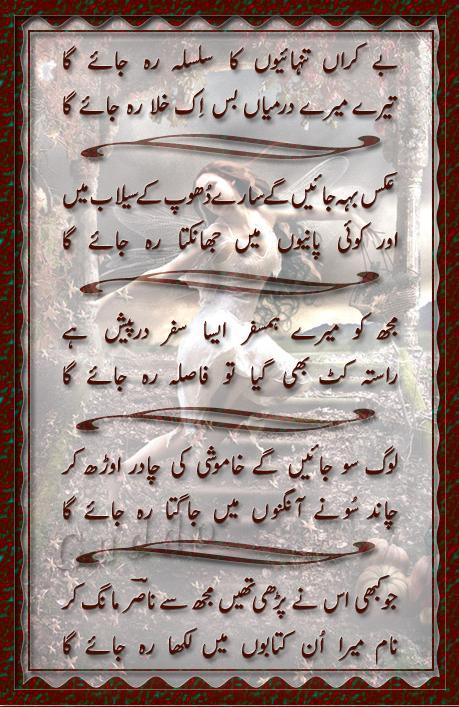 بے کراں تنہائیوں کا سلسلہ رہ جائے گا
تیرے میرے درمیاں بس اِک خلا رہ جائے گا
عکس بہہ جائیں گے سارے دُھوپ کے سیلاب میں
اور کوئی پانیوں میں جھانکتا رہ جائے گا
مجھ کو میرے ہمسفر ایسا سفر درپیش ہے
راستہ کٹ بھی گیا تو فاصلہ رہ جائے گا
لوگ سو جائیں گے خاموشی کی چادر اوڑھ کر
چاند سُونے آنگنوں میں جاگتا رہ جائے گا
جو کبھی اس نے پڑھی تھیں مجھ سے ناصؔر مانگ کر
نام میرا اُن کتابوں میں لکھا رہ جائے گا